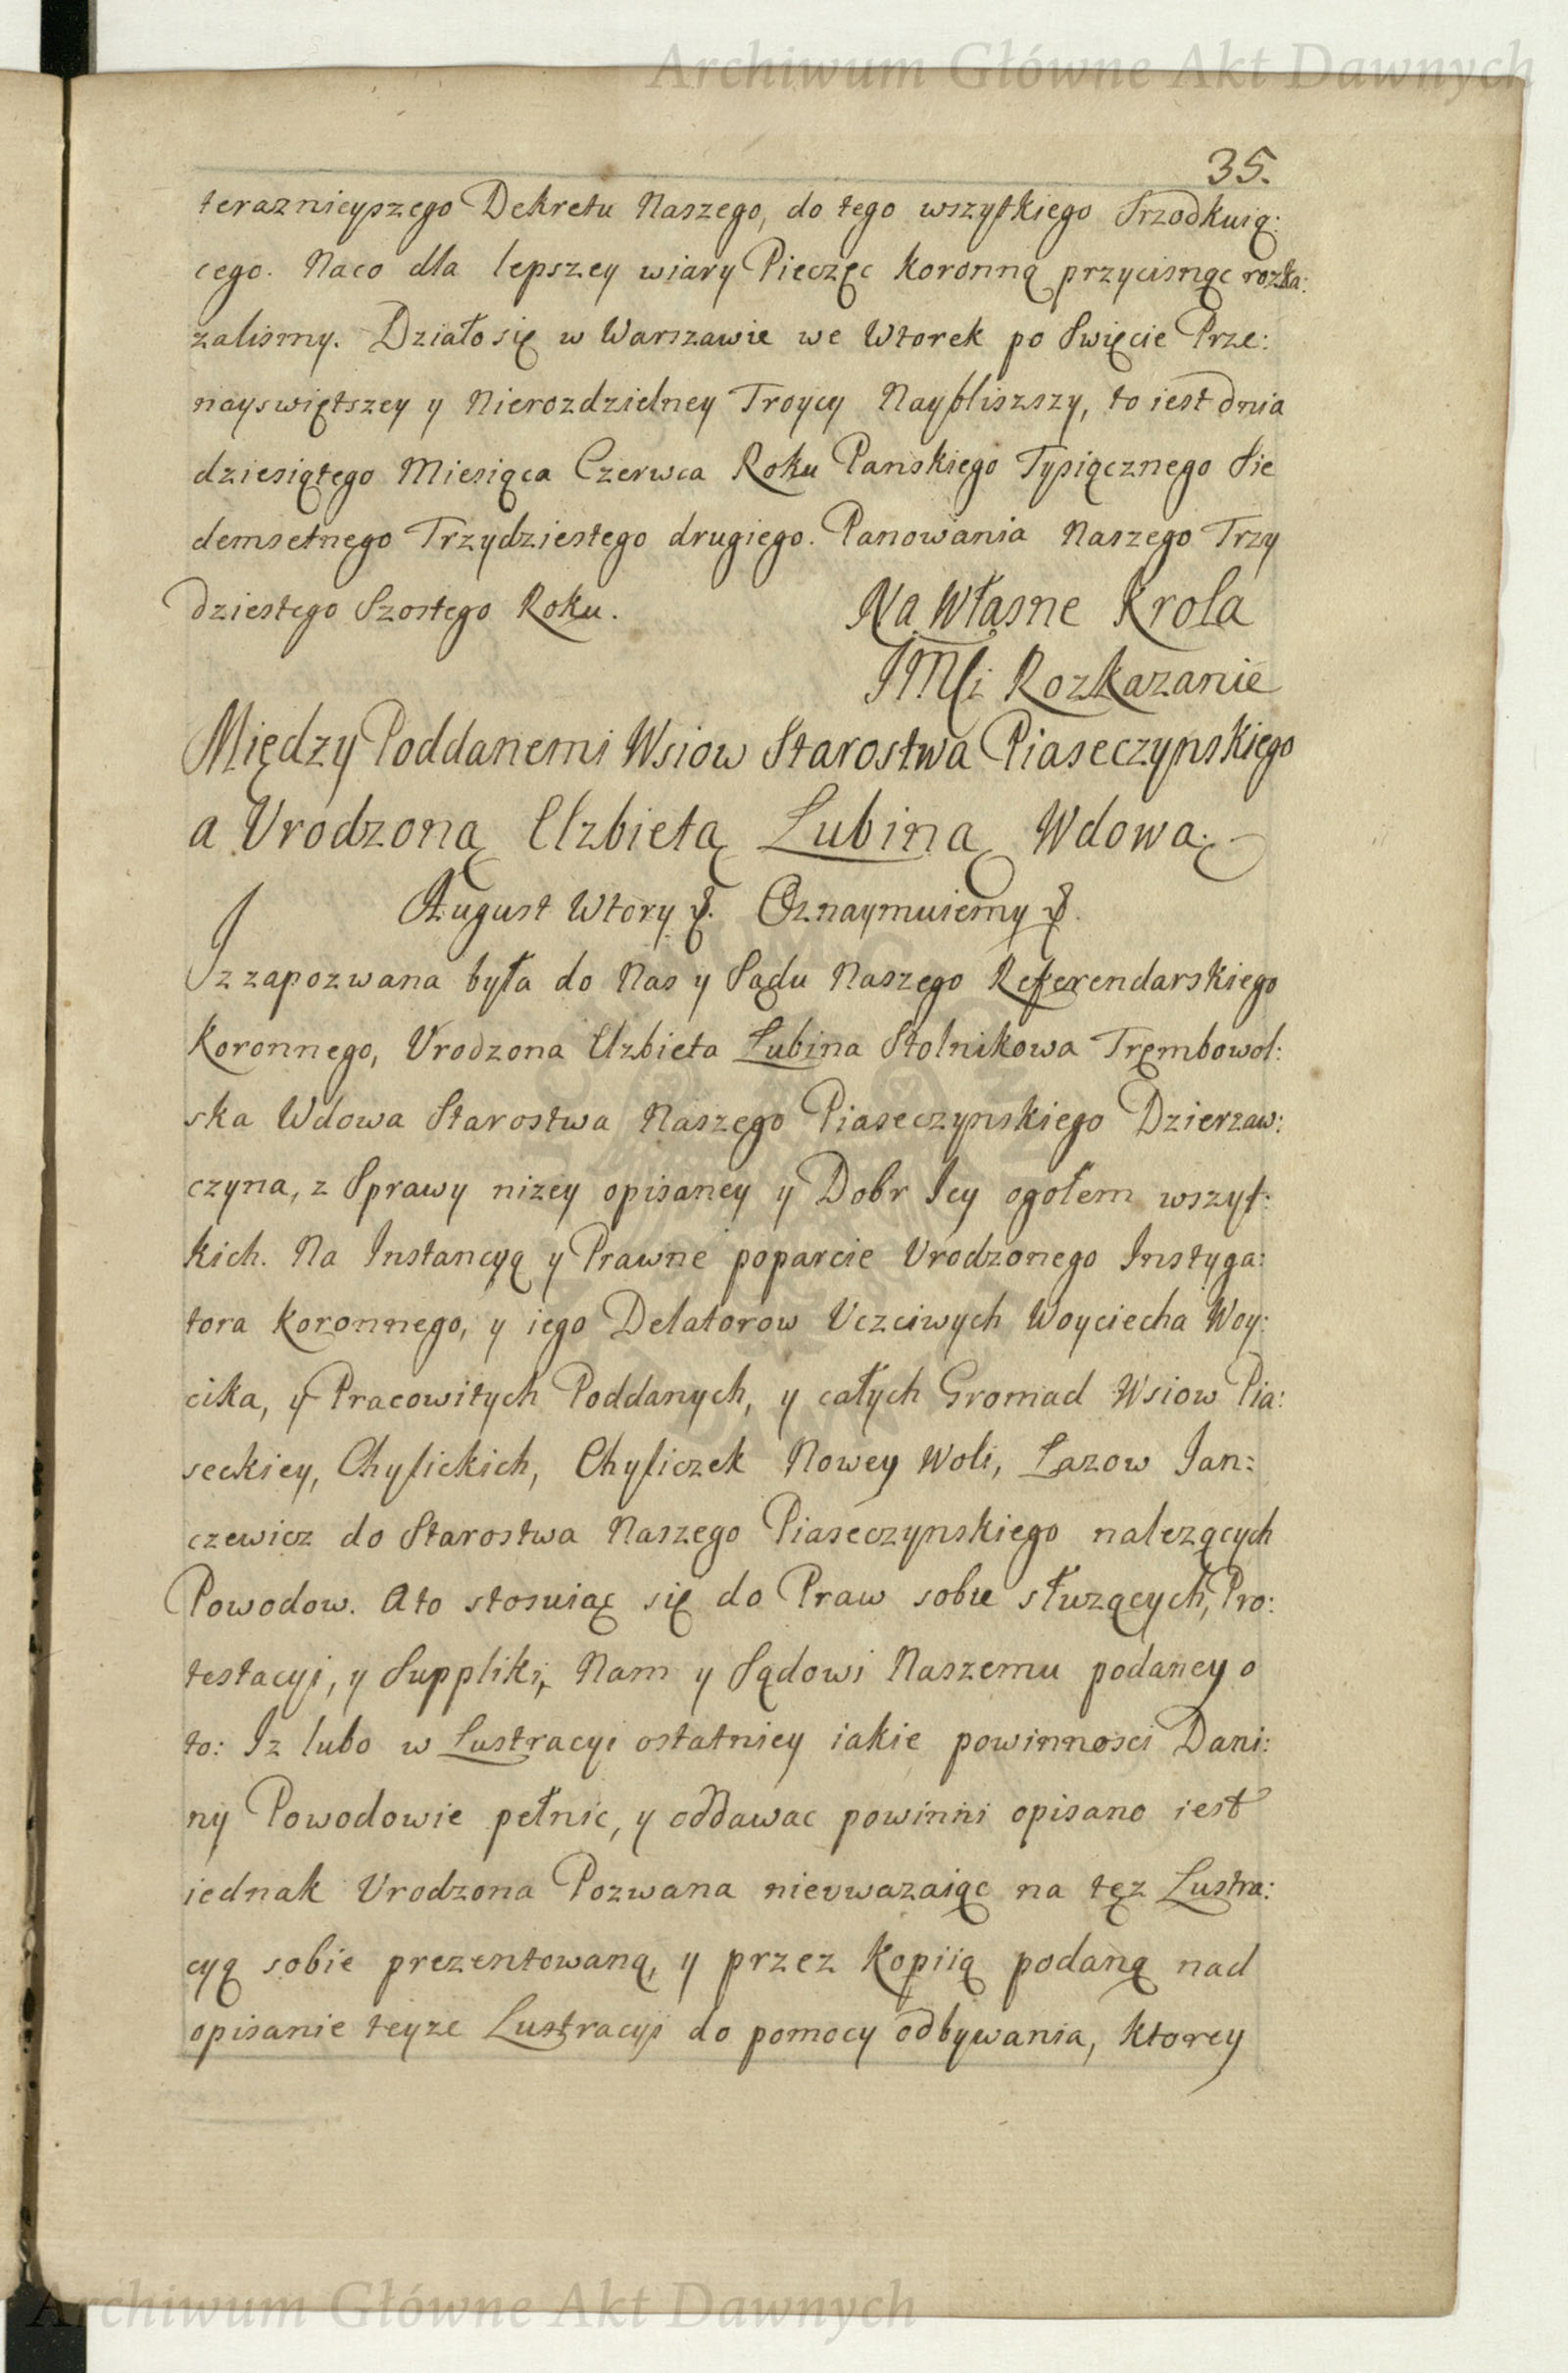 Archiwum Główne Akt Dawnych
35.
teraznieyszego Dekretu Naszego, do tego wszytkiego Srzodkuią:
cego. Naco dla lepszey wiary Pieczęc Koronną przycisnąc rozka:
zalismy. Działo się w Warszawie we Wtorek po Swięcie Prze:
nayswiętszey y Nierozdzielney Troycy Naybliszszy, to iest dnia
dziesiątego Miesiąca Czerwca Roku Panskiego Tysiącznego Sie
demsetnego Trzydziestego drugiego. Panowania Naszego Trzy
dziestego Szostego Roku. Na Własne Krola
JMSi Rozkazanie
Między Poddanemi Wsiow Starostwa Piaseczynskiego
a Urodzoną Elzbietą Łubiną Wdową.
August Wtory &. Oznaymuiemy &.
Iz zapozwana była do Nas y Sądu Naszego Referendarskiego
Koronnego, Urodzona Elzbieta Łubina Stolnikowa Trembowol:
ska Wdowa Starostwa Naszego Piaseczynskiego Dzierzaw:
czyna, z Sprawy nizey opisaney y Dobr Iey ogołem wszyt:
kich. Na Instancyą y Prawne poparcie Urodzonego Instyga:
tora Koronnego, y iego Delatorow Uczciwych Woyciecha Woy:
cika, y Pracowitych Poddanych, y całych Gromad Wsiow Pia:
seckiey, Chylickich, Chyliczek Nowey Woli, Łazow Ian:
czewicz do Starostwa Naszego Piaseczynskiego nalezących
Powodow. Ato stosuiąc się do Praw sobie słuzących, Pro:
testacyi, y Suppliki, Nam y Sądowi Naszemu podaney o
to: Iz lubo w Lustracyi ostatniey iakie powinnosci Dani:
ny Powodowie pełnic, y oddawac powinni opisano iest
iednak Urodzona Pozwana nieuwazaiąc na tęz Lustra:
cyą sobie prezentowaną, y przez Kopiią podaną nad
opisanie teyze Lustracyi do pomocy odbywania, ktorey
Archiwum Główne Akt Dawnych